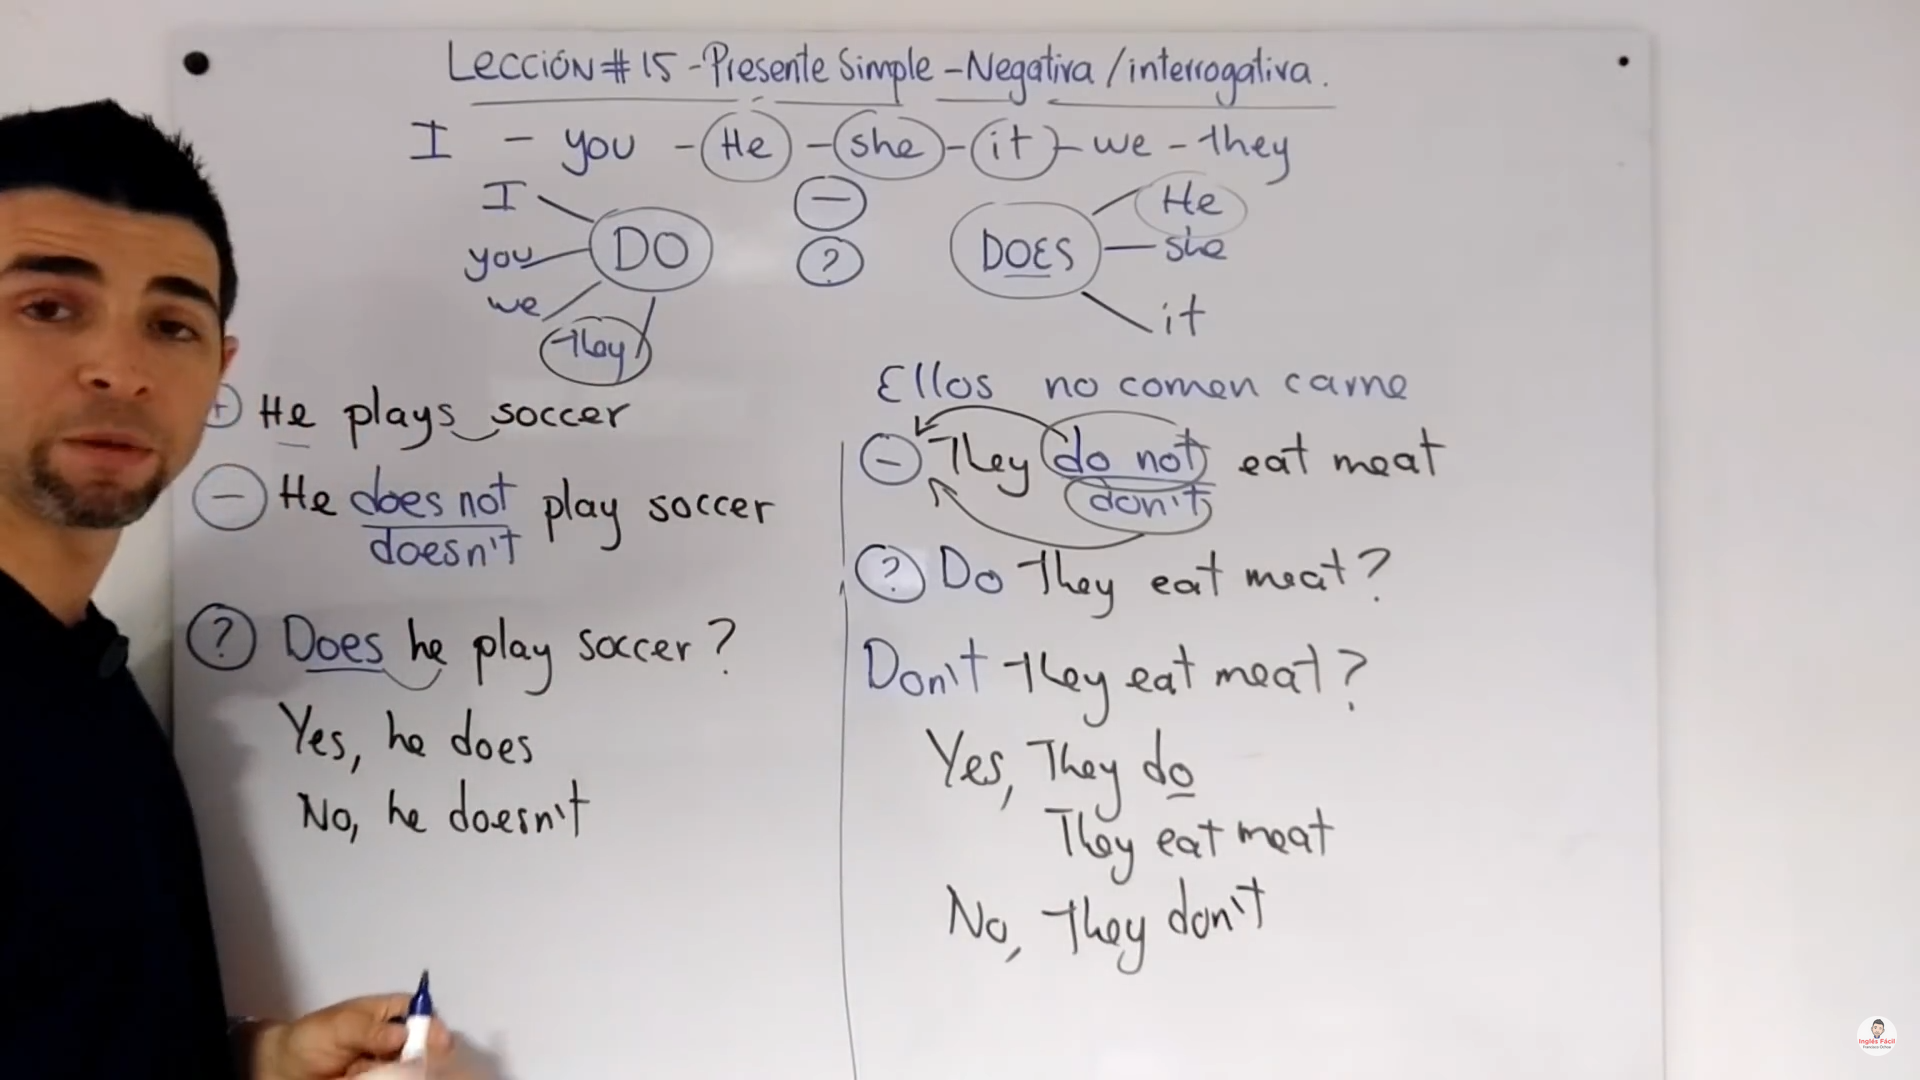 Lección #15 - Presente Simple - Negativa / interrogativa.
I - you - He - she - it - we - they
I
you
we
they
DO
—
?
DOES
He
she
it
+ He plays soccer
— He does not play soccer
doesn't
? Does he play soccer?
Yes, he does
No, he doesn't
Ellos no comen carne
— They do not eat meat
don't
? Do They eat meat?
Don't They eat meat?
Yes, They do
They eat meat
No, They don't
Inglés Fácil